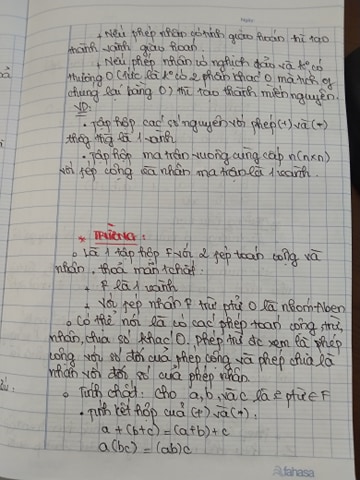 + Nếu phép nhân có tính giao hoán thì tạo
thành vành giao hoán.
+ Nếu phép nhân có nghịch đảo và ko có
thương 0 (tức là ko có 2 phần khác 0 mà tích
chung lại bằng 0) thì tạo thành miền nguyên.
VD:
• Tập hợp các số nguyên với phép (+) và (*)
là 1 vành
• Tập hợp ma trận vuông cùng cấp n(n×n)
với phép cộng và nhân ma trận là 1 vành.
* TRƯỜNG:
o Là 1 tập hợp F với 2 phép toán cộng và
nhân. thoả mãn t/chất:
+ F là 1 vành
+ Với phép nhân F trừ ptử 0 là nhóm Aben
o Có thể nói là có các phép toán cộng, trừ,
nhân, chia số khác 0. phép trừ đc xem là phép
cộng với số đối của phép cộng và phép chia là
nhân với đối số của phép nhân.
o Tính chất: cho a, b, và c là ptử ∈ F
• Tính kết hợp của (+) và (*):
a + (b+c) = (a+b) + c
a(bc) = (ab)c
fahasa